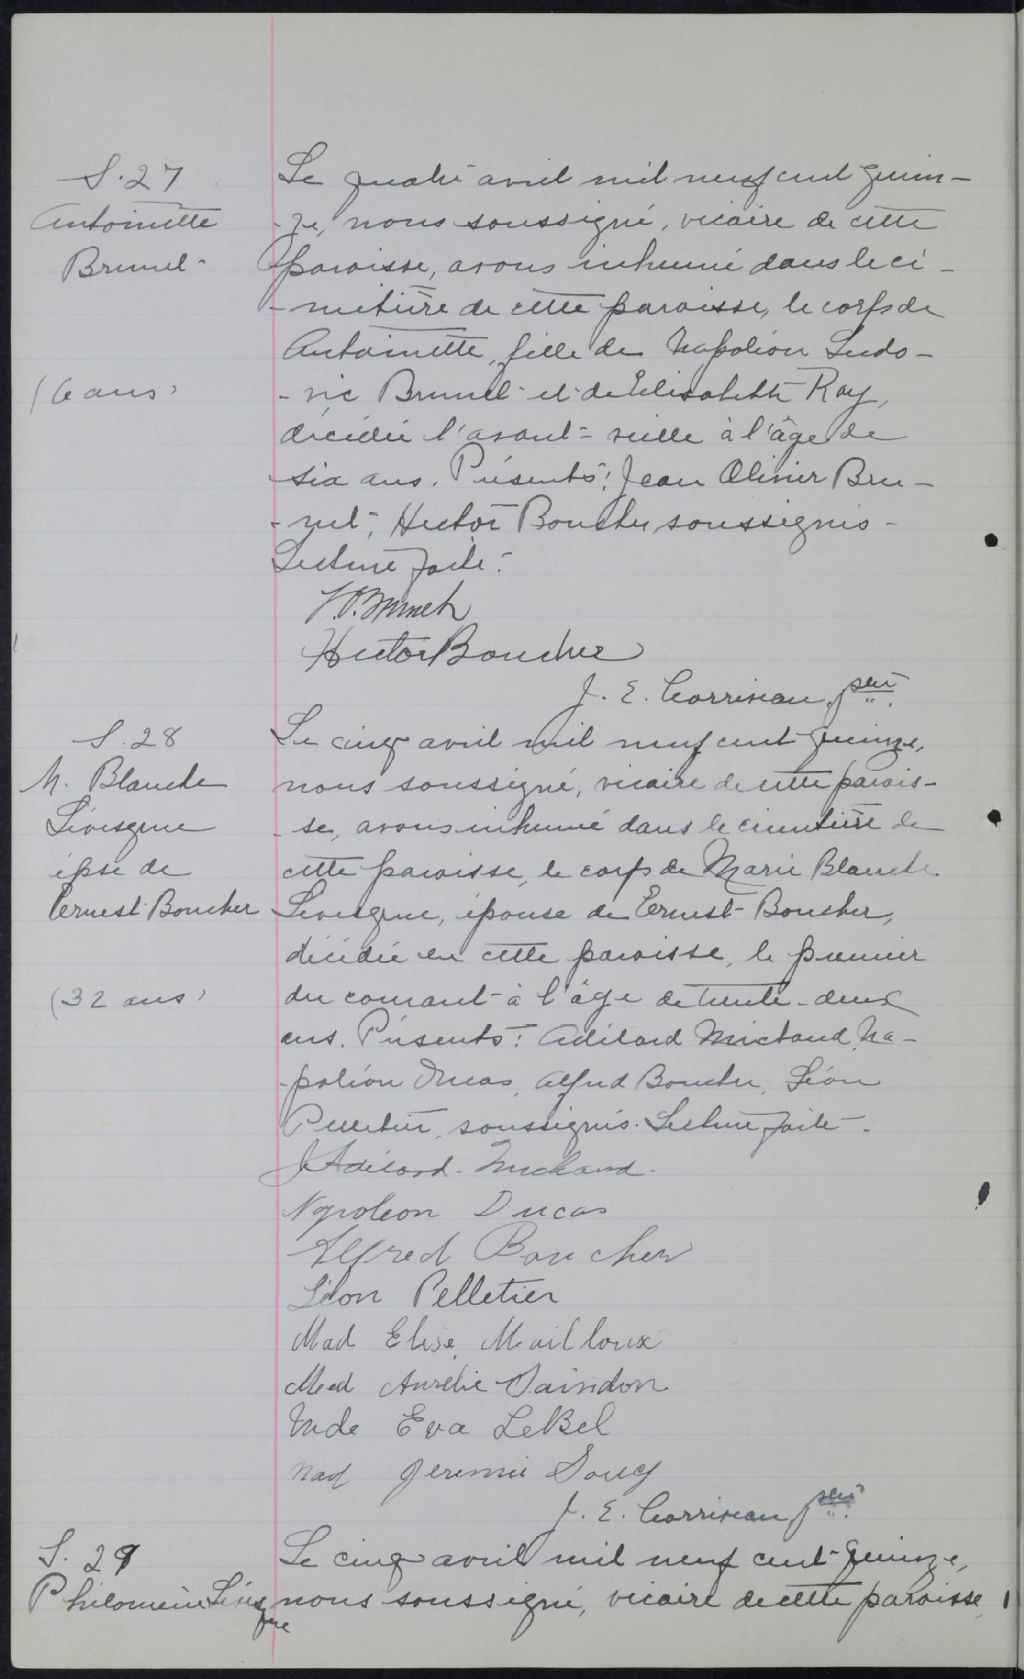 S. 27
Antoinette
Brunet
(6 ans)
Le quatre avril mil neuf cent quin-
-ze, nous soussigné, vicaire de cette
paroisse, avons inhumé dans le ci-
-metière de cette paroisse, le corps de
Antoinette, fille de Napoléon Ludo-
-vic Brunet et de Elisabeth Roy,
décédée l'avant-veille à l'âge de
six ans. Présents: Jean Olivier Bru-
-net, Hector Boucher soussignés-
Lecture faite.
Brunet
Hector Boucher
J. E. Corriveau, ptre.
S. 28
M. Blanche
Lévesque
épse de
Ernest Boucher
(32 ans)
Le cinq avril mil neuf cent quinze,
nous soussigné, vicaire de cette parois-
-se, avons inhumé dans le cimetière de
cette paroisse, le corps de Marie Blanche
Lévesque, épouse de Ernest Boucher,
décédée en cette paroisse, le premier
du courant à l'âge de trente-deux
ans. Présents: Adélard Michaud, Na-
-poléon Ducas, Alfred Boucher, Léon
Pelletier, soussignés. Lecture faite.
J Adélard Michaud
Npoleon Ducas
Alfred Boucher
Léon Pelletier
Mad Elise Mailloux
Med Aurélie Saindon
Mde Eva LeBel
Mad Jeremie Soucy
J. E. Corriveau, ptre.
S. 29
Philomène Lévesque
Le cinq avril mil neuf cent quinze,
nous soussigné, vicaire de cette paroisse,